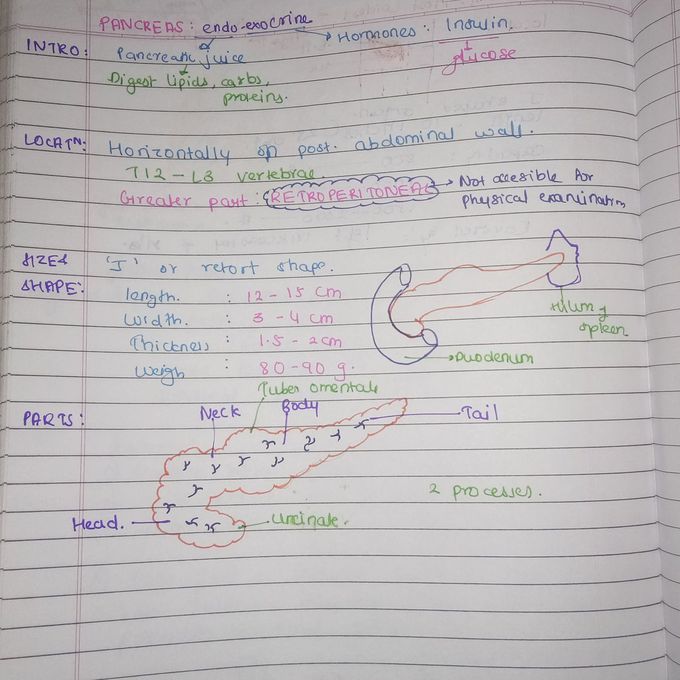 PANCREAS: endo-exocrine → Hormones: Insulin
INTRO: Pancreatic juice ↓ glucose
Digest lipids, carbs,
proteins.
LOCATN: Horizontally on post. abdominal wall.
T12-L3 vertebrae.
Greater part: RETROPERITONEAL → Not accesible for
physical examination
SIZE & 'J' or retort shape.
SHAPE:
length. : 12-15 cm
width. : 3-4 cm
Thickness : 1.5-2cm
weigh : 80-90 g.
Hilum of
spleen
Duodenum
Tuber omentale
PARTS: Neck Body Tail
2 processes.
Head. Uncinate.